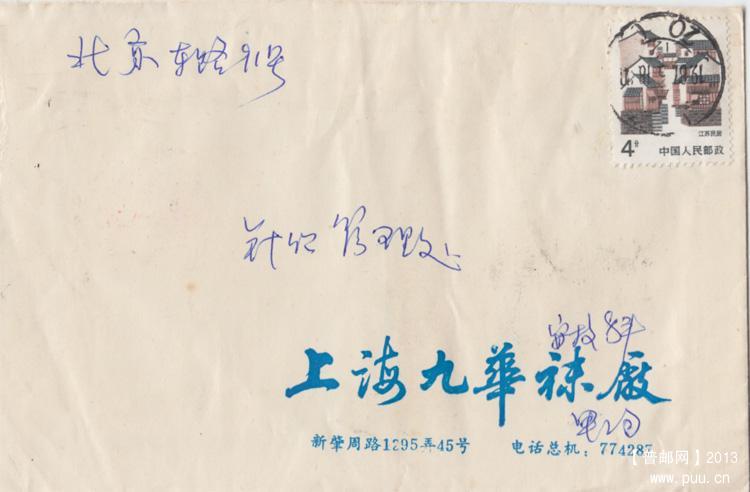 北京东路91号
江苏民居
4分 中国人民邮政
管理处
上海九華袜厰
新肇周路1295弄45号 电话总机：774287
【普邮网】2013
www.puu.cn